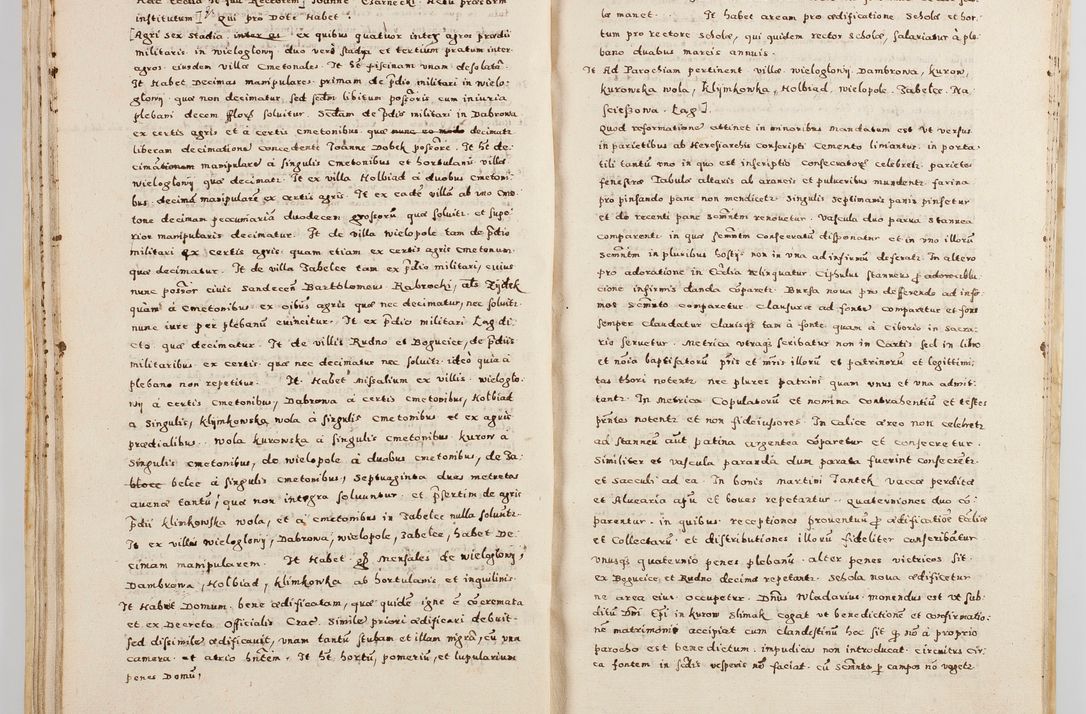 institutum] Qui pro Dote Habet.
[Agri sex stadia inter ex quibus quatuor inter agros prædii
militaris in wielogłony duo verò stadia et tertium pratum inter
agros eiusdem villæ Cmetonales. It hẽ piscinam unam desolatã.
It Habet Decimas manipulares primam de p̃dio militari in wielo-
głony quæ non decimatur sed scdm libitum possoris cum iniuria
plebani decem fflor solvitur. Scdam de p̃dio militari in Dabrowa
ex certis agris et à certis cmetonibus quæ nunc eo modo decimatr
liberam decimatione concedente Joanne Dobek possore. It hẽt de-
cimationem manipularē à singulis Cmetonibus et hortulanis villæ
wielogłony quæ decimatr. It ex villa Holbiad à duobus cmetoni-
bus decimã manipularẽ ex certis agris. It ex eadẽ villa ab uno Cme-
tone decimam pecuniariã duodecem grossorũ quæ solvitr et supe-
rior manipularis decimatur. It de villa wielopole tam de p̃dio
militari ex certis agris quam etiam ex certis agris cmetonum
quæ decimatur. It de villa Zabelcc tam ex p̃dio militari, cuius
nunc possor civis Sandecen Bartholomeus Rabrocki, als Zydek
quàm à Cmetonibus ex eibus agris quæ nec decimatur, nec solvitr
nunc iure per plebanũ evincitur. It ex p̃dio militari Lag di-
cto quæ decimatur. It de villis Rudno et Bogucice, de p̃diis
militaribus ex certis quæ nec decimatur nec solvitr ideò quia à
plebano non repetitur. It Habet Missalium ex villis wielogło-
ny à certis Cmetonibus, Dabrowa à certis cmetonibus, Holbiad
à Singulis, Klymkowska wola à singulis cmetonibus et ex agris
prædialibus. wola kurowska à singulis Cmetonibus kurow à
Singulis cmetonibus, de wielopole à duobus cmetonibus, de Za-
belcc à singulis Cmetonibus, Septuaginta duas metretas
avenæ tantũ, quæ non integra solvuntur, et p̃sertim de agris
p̃dii Klimkowska wola, et à cmetonibus in Zabelcc nulla solvũtr.
It ex villis wielogłony, Dabrowa, wielopole, Zabelcc, habet De-
cimam manipularem. It Habet mensales de wielogłony,
Dambrowa, Holbiad, Klimkowka ab hortulanis et inquilinis.
It Habet Domum bene ædificatam, quæ quidẽ igne ẽ cõcremata
et ex Decreto Officialis Crac. Simile priori ædificari debuit
sed dissimile ædificavit, unam tantũ stubam et illam nigrã, cũ una
camera et atrio hñtem. It hẽt hortũ, pomeriũ, et lupularium
penes Domũ,
la manet. It habet aream pro ædificatione Scholæ et hor-
tum pro rectore scholæ, qui quidem rector scholæ, salariatur à ple-
bano duabus marcis annuis.
It Ad Parochiam pertinent villæ. wielogłony. Dambrowa, kurow,
kurowska wola, Klymkowka, Holbiad, wielopole. Zabelcc. Na-
scieszowa. Lag].
Quod reformatione attinet in minoribus Mandatum est Ut versus
in parietibus ab Heresiarchis conscripti Cemento liniantur. in porta-
tili tantũ uno in quo est inscriptio Consecratoris celebretr parietes
fenestræ Tabulæ altaris ab araneis et pulveribus mundentr. farina
pro pinsando pane non mendicetr. Singulis Septimanis panis pinsetur
et do recenti pane Scmñtm renovetur. Vascula duo parva Stannea
Comparentr in quæ Scmñtm Consecratũ disponatur et in uno illorũ
Scmñtm in pluribus hostys non in una ad infirmũ deferatr. In altero
pro adoratione in Ecclia relinquatur. Ciphulus stanneus p̱ adoreiblu-
cione infirmis danda cõparetr. Bursa nova pro deferendo ad infir-
mos Scmñto comparetur. Clausuræ ad fonte comparetur et fons
semper claudatur clavisqz tam à fonte. quam à Ciborio in Sacra-
rio servetur. Metrica utraqz scribatur non in Cartis sed in libro
et nõia baptisatorũ pr̃is et mr̃is illorũ et patrinorũ et legittimi-
tas thori notentr nec plures patrini quam unus et una admit-
tantr. In Metrica Copulatorũ et nomina contrahentiũ et testes
pr̃ntes notentr et non fideiussores. In calice æreo non celebretr
ad stanneũ aut patina argentea cõparetur et consecretur.
Similiter et vascula paranda dum parata fuerint consecrẽtr
et Sacculi ad ea. In bonis martini Jantek vaccæ perditæ
et Alvearia apũ et boves repetantur. quaterniones duo cõ-
parentur. in quibus receptiones proventuũ p̱ ædificatiõe ecc̃liæ
et Collectarũ et distributiones illorũ fideliter canseribãtur
unusqz quaternio penes plebanũ alter penes vitricos sit.
ex Bogucice, et Rudno decimæ repetantr. Schola nova ædificetur
ne area eius occupetur. Dñus Wladarius monendus est ut sub-
ditũ Dñi Epi in kurow Slimak cogat ut benedictionẽ et confirmatio-
nẽ matrimonii accipiat cum clandestinũ hoc sit q̱ nõ à proprio
parocho est benedictum. impudica non introducat. circuitus cir-
ca fontem in festis vesperis nõ faciat. cũ Scmñto p̱ campos nõ vagetr